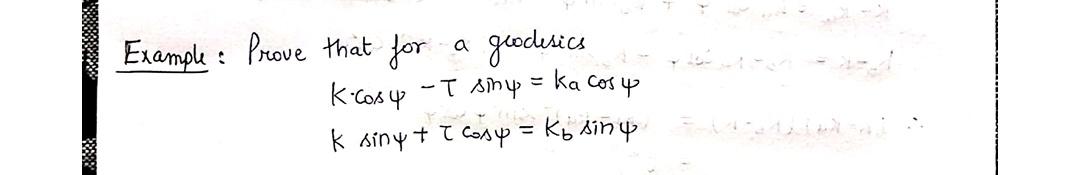 Example : Prove that for a geodesics
K·cosψ - τ sinψ = Ka cosψ
K sinψ + τ cosψ = Kb sinψ